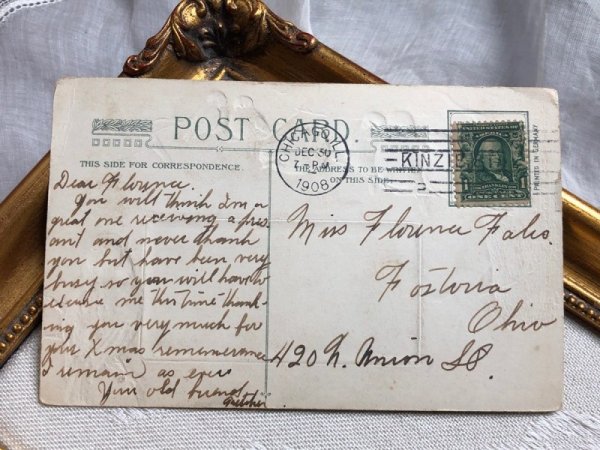 POST CARD
THIS SIDE FOR CORRESPONDENCE.
THE ADDRESS TO BE WRITTEN
ON THIS SIDE
CHICAGO, ILL.
DEC 30
7 - P.M.
1908
KINZI
UNITED STATES OF AMERICA
1 ONE CENT 1
PRINTED IN GERMANY
Dear Florence.
You will think I'm a
great one receiving a pres
ant and never thank
you but have been very
busy so you will have to
excuse me this time thank-
ing you very much for
your Xmas rememerance
I remain as ever
Your old friend
Miss Florence
Fostoria
Ohio
420 N. Union St.